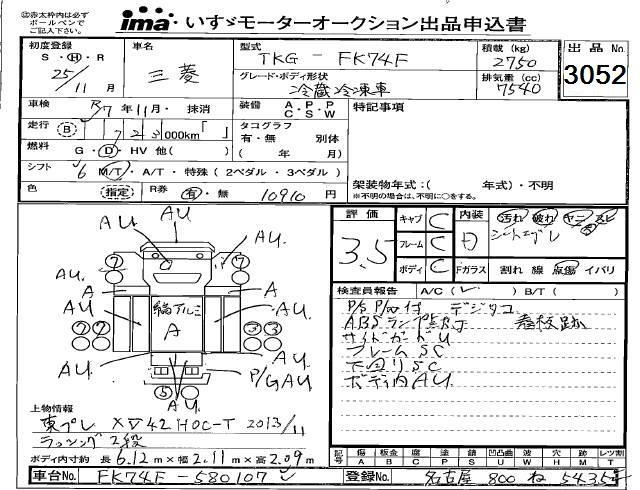 ㊟赤太枠内は必ず
ボールペンで
ご記入ください。
ima いすゞモーターオークション出品申込書
初度登録 S・H・R 25/11月
車名 三菱
型式 TKG - FK74F
グレード・ボディ形状 冷蔵冷凍車
積載(kg) 2750
排気量(cc) 7540
出品No. 3052
車検 R7年11月・抹消
装備 A・P・P C・S・W
特記事項
走行 B 723000km「 」
タコグラフ 有・無 別体 ( 年 月)
燃料 G・D・HV 他( )
シフト 6 M/T・A/T・特殊(2ペダル・3ペダル)
架装物年式:( 年式)・不明
※不明の場合は、不明に○をする。
色 指定 R券 有・無 10910円
評価 3.5
キャブ C
フレーム C
ボディ C
内装 D
汚れ 破れ ヤニ スレ
Fガラス 割れ 線 点傷 イバリ
検査員報告 A/C( ) B/T( )
P/G P/G付 デジタコ
ABSランプ 看板跡
サイドガードU
フレームSC
下回りSC
ボディ内AU
AU AU AU
7 7
AU AU
A A
縞アルミ
A
7 7 3 3
AU AU
AU AU P/GAU
5
AU
上物情報
東プレ XV42HOC-T 2013/11
ラッシング2段
ボディ内寸約 長6.12m×幅2.11m×高2.09m
記号 傷A 板金B 腐C 塗P 錆S 凹凸凹曲U 欠X 補W 穴H 跡M レンズ割T
車台No. FK74F-580107
登録No. 名古屋 800 ね 5435号